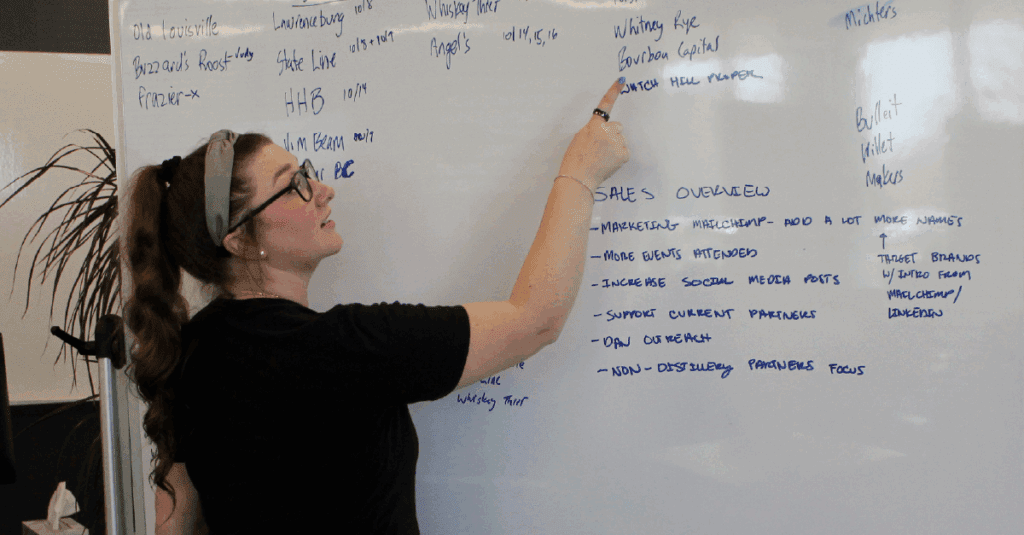 Old Louisville
Buzzard's Roost Judy
Frazier-x
Lawrenceburg 10/8
State Line 10/8 + 10/9
HHB 10/14
Jim Beam
BC
Whiskey Thief
Angel's 10/14, 15, 16
Whitney Rye
Bourbon Capital
WATCH HILL PROPER
Michters
Bulleit
Willet
Makers
SALES OVERVIEW
- MARKETING MAILCHIMP - ADD A LOT MORE NAMES
↑
TARGET BRANDS
W/ INTRO FROM
MAILCHIMP/
LINKEDIN
- MORE EVENTS ATTENDED
- INCREASE SOCIAL MEDIA POSTS
- SUPPORT CURRENT PARTNERS
- DAN OUTREACH
- NON-DISTILLERY PARTNERS FOCUS
Whiskey Thief